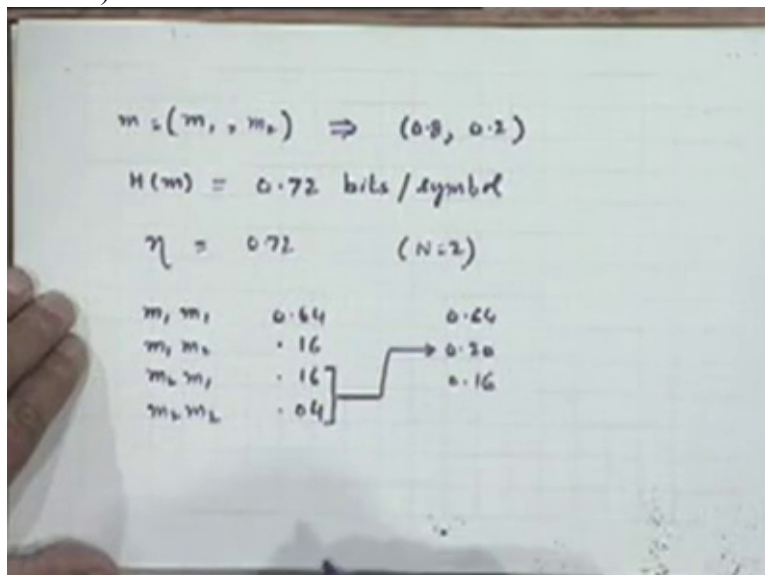 m = (m₁, m₂) ⇒ (0.8, 0.2)
H(m) = 0.72 bits/symbol
η = 0.72 (N=2)
m₁ m₁ 0.64 0.64
m₁ m₂ .16 0.20
m₂ m₁ .16 0.16
m₂ m₂ .04